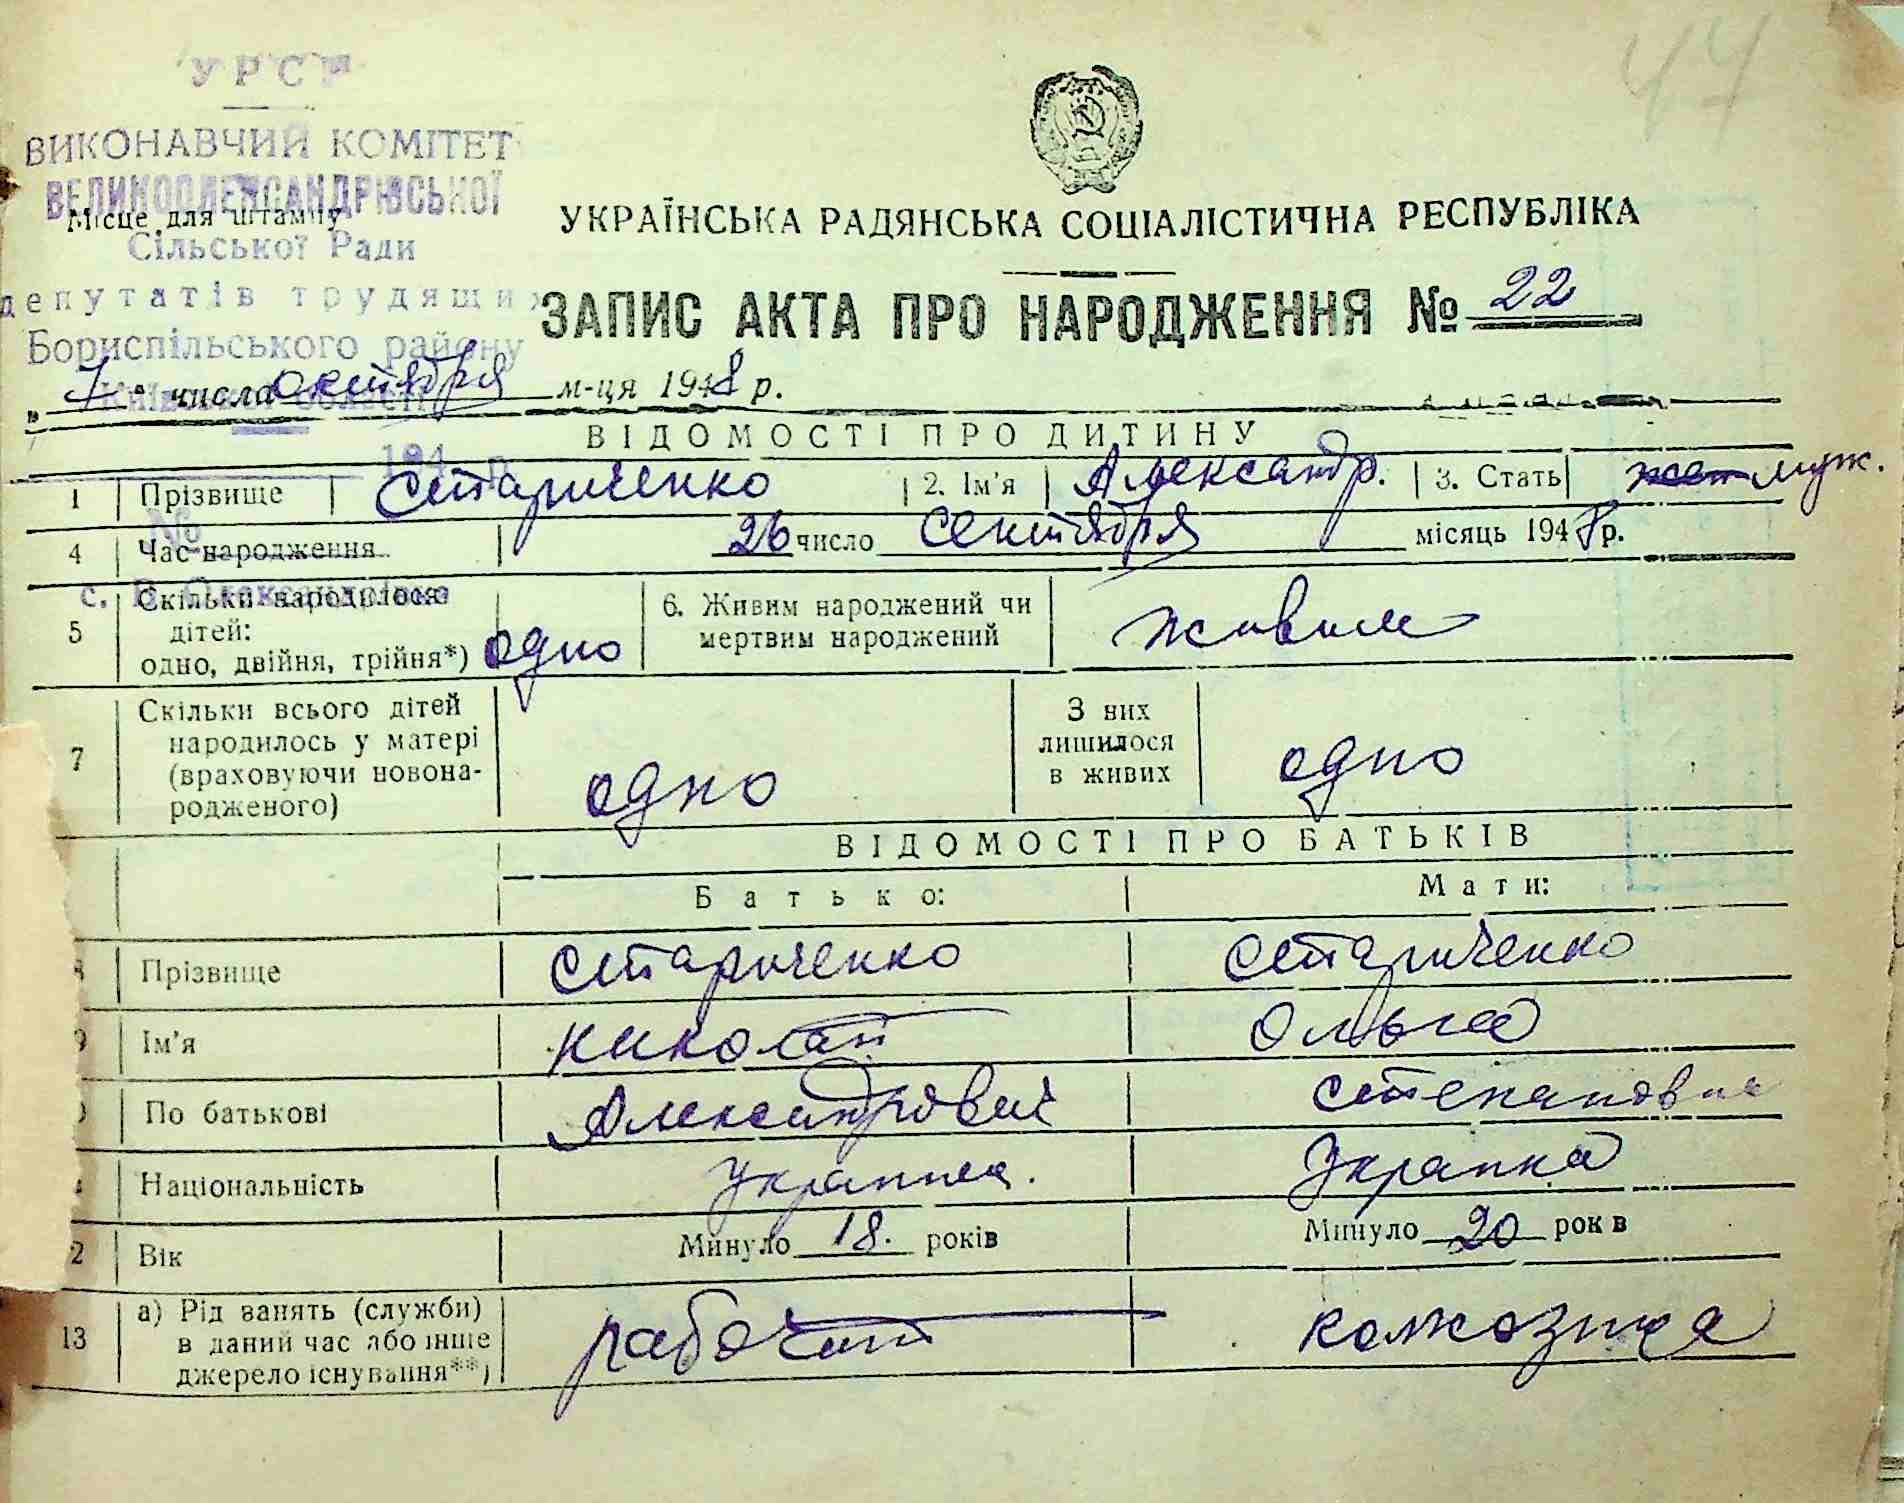 44
УРСР
ВИКОНАВЧИЙ КОМІТЕТ
ВЕЛИКООЛЕКСАНДРІВСЬКОЇ
Місце для штампу
Сільської Ради
депутатів трудящих
Бориспільського району
Київської області
194 р.
№
с. В. Олександрівка
УКРАЇНСЬКА РАДЯНСЬКА СОЦІАЛІСТИЧНА РЕСПУБЛІКА
ЗАПИС АКТА ПРО НАРОДЖЕННЯ № 22
„ 7 " числа октября м-ця 1948 р.
ВІДОМОСТІ ПРО ДИТИНУ
1 Прізвище Стариченко 2. Ім'я Александр. 3. Стать жен муж.
4 Час народження 26 число Сентября місяць 1948 р.
5 Скільки народилося дітей: одно, двійня, трійня*) одно 6. Живим народжений чи мертвим народжений живим
7 Скільки всього дітей народилось у матері (враховуючи новона-родженого) одно З них лишилося в живих одно
ВІДОМОСТІ ПРО БАТЬКІВ
Батько: Мати:
Прізвище Стариченко Стариченко
9 Ім'я Николай Ольга
По батькові Александрович Степановна
Національність Украинец. Украинка
2 Вік Минуло 18. років Минуло 20 рок в
13 а) Рід занять (служби) в даний час або інше джерело існування**) рабочий колхозница